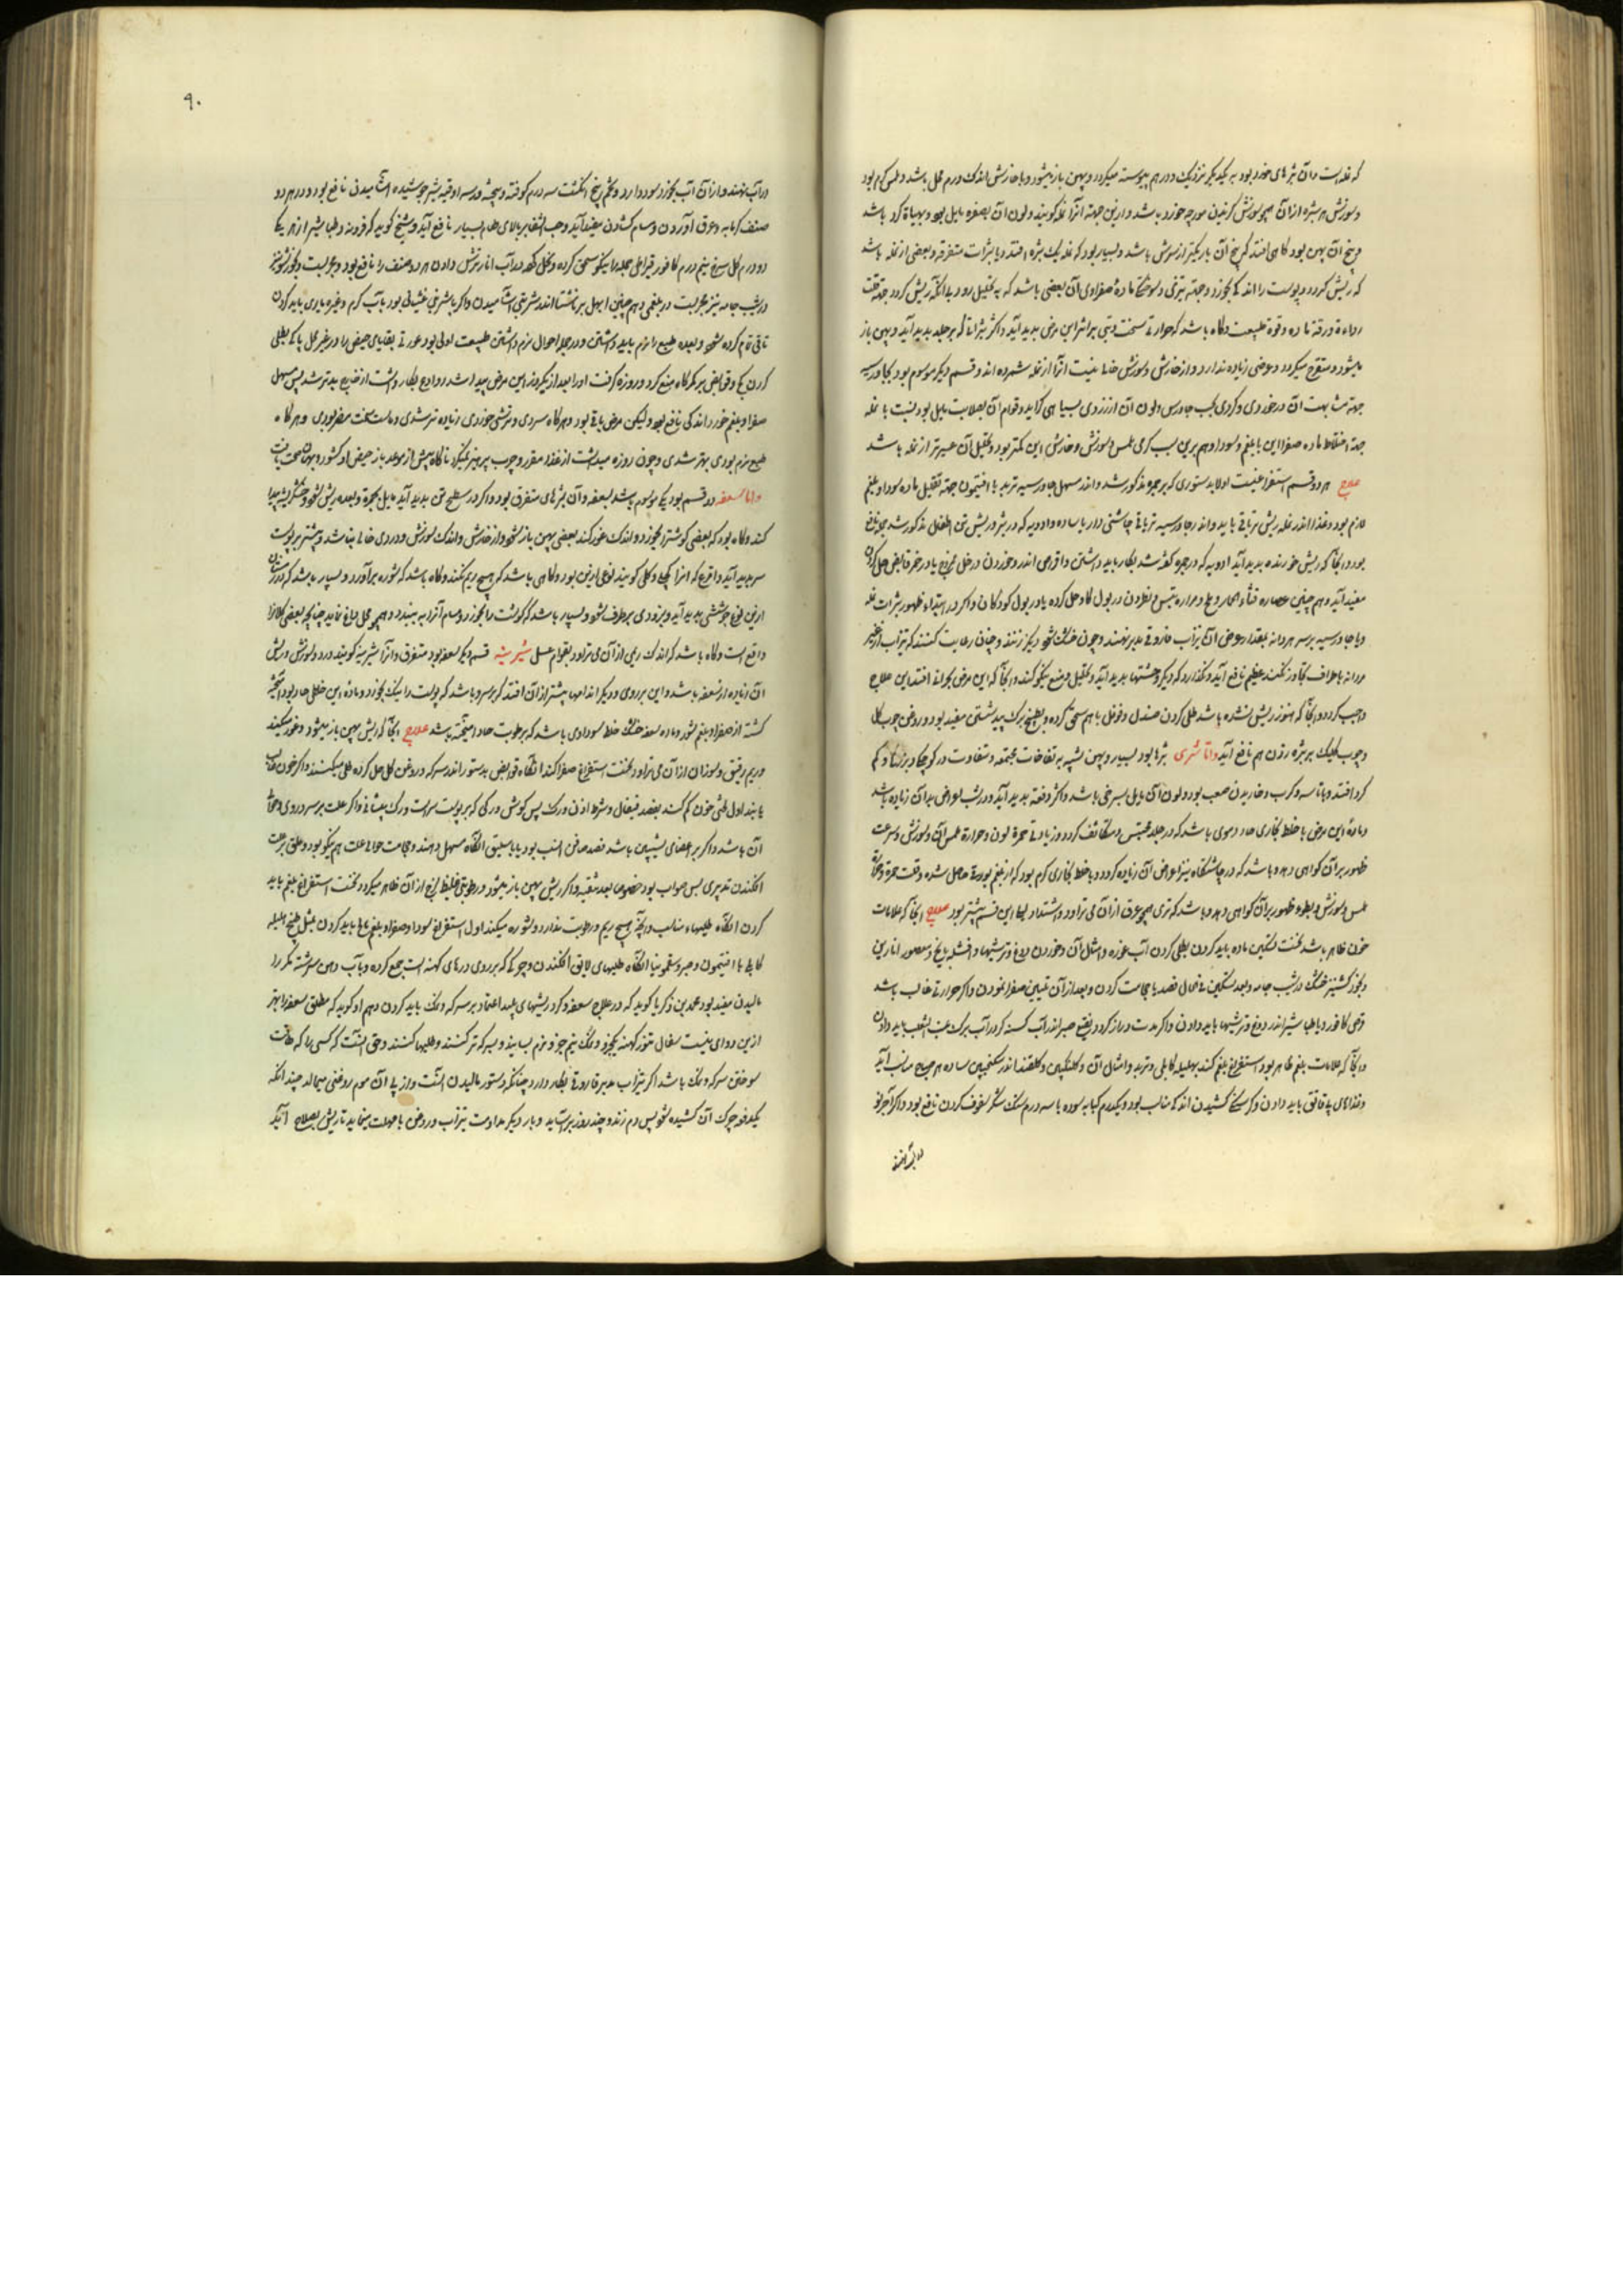 که نمله است و آن بثرهای خورد بود به یکدیگر نزدیک و در هم پیوسته میگردد و پهن باز میشود و با خارش اندک و ورم محل باشد و ملمس گرم بود
و سوزش هر بثره از آن همچو سوزش گزیدن مورچه خورد باشد و ازین جهة آنرا نمله گویند و لون آن بصفره مایل بود و بهیأة گرد باشد
و بیخ آن پهن بود گاهی افتد که بیخ آن باریکتر از سرش باشد و بسیار بود که نمله یک بثره افتد و یا بثرات متفرقه و بعضی از نمله باشد
که ریش گردد و پوست را اندکی بخورد و جهة تیزی و سوختگی مادهٔ صفراوی آن بعضی باشد که به تحلیل رود بی آنکه ریش گردد جهة قلت
رداءة و رقة ماده و قوة طبیعت و گاه باشد که حرارتی سخت و تبی بر اثر این مرض پدید آید و اکثر بثراتی که بر جلد پدید آید و پهن باز
میشود و متقرح میگردد و عرضی زیاده ندارد و از خارش و سوزش خالی نیست آنرا از نمله شمرده اند و قسم دیگر موسوم بود بجاورسیه
جهة مشابهت آن در خوردی و گردی بحب جاورس و لون آن از زردی بسیاهی گراید و قوام آن بصلابت مایل بود نسبت با نمله
جهة اختلاط ماده صفرا این با بلغم و سودا و هم برین سبب گرمی ملمس و سوزش و خارش این کمتر بود و تحلیل آن عسیرتر از نمله باشد
علاج هر دو قسم استفراغیست اولا بدستوری که بر جمره مذکور شد و اندر مسهل جاورسیه تربد با افتیمون جهة تقلیل ماده سودا و بلغم
لازم بود و غذا اندر نمله ریش تریاقی باید و اندر جاورسیه تریاقی چاشنی دار یا ساده و ادویه که در بثر و ریش تن اطفال مذکور شد همه نافع
بود و آنجا که ریش خورنده پدید آید ادویه که در جمره گفته شد بکار باید داشتن و اقراص اندروخورون در خل ممزوج یا در خمر قابض حل کردن
مفید آید و هم چنین عصاره قثاء الحمار و ملح و مراره تیس و نطرون در بول گاو حل کرده یا در بول کودکان و اگر در ابتداء ظهور بثرات نمله
و یا جاورسیه بر سر هر دانه بمقدار عرض آن تیزاب فاروقی مدبر نهند و چون خشک شود دیگر زنند و چنان رعایت کنند که تیزاب از غیر
سر دانه باطراف تجاوز نکند عظیم نافع آید و نگذارد که دیگر جستها پدید آید و تحلیل و منع نیکو کند و آنجا که این مرض بحرانی افتد این علاج
واجب گردد و آنجا که هنوز ریش نشده باشد طلی کردن صندل و فوفل با هم سحق کرده و بطبیخ برگ بید سشتن مفید بود و روغن چوب کل
و چوب کلیک بر بثره زدن هم نافع آید و اما شری بثرها بود بسیار و پهن شبیه به نفاخات مجتمعه و متفاوت در کوچکی و بزرگی و کم
گرد افتد و با تاسه و کرب و خاریدن صعب بود و لون آن مایل بسرخی باشد و اکثر دفعة پدید آید و در شب اعراض بدان زیاده باشد
و مادهٔ این مرض یا خلط بخاری حاد دموی باشد که در جلد محتبس و متکاثف گردد و زیادتی حمرة لون و حرارة ملمس آن و سوزش و سرعت
ظهور بر آن گواهی دهد و باشد که در چاشتگاه نیز اعراض آن زیاده گردد و یا خلط بخاری گرم بود که از بلغم بورقی حاصل شده و قلت حمرة و حرارة
ملمس و سوزش و بطوء ظهور بر آن گواهی دهد و باشد که تری همچو عرق از آن می تراود و اشتداد لیلا این قسم بیشتر بود علاج آنجا که علامات
خون ظاهر باشد نخست تسکین ماده باید کردن بطلی کردن آب غوره و امثال آن و خوردن دوغ و ترشیها و افشله بایخ و معصور انارین
و بخور کشنیز خشک در شب جامه و بعد تسکین فی الحال فصد یا حجامت کردن و بعد از آن تلیین صفرا نمودن و اگر حرارتی غالب باشد
قرص کافور و یا طباشیر اندر دوغ و ترشیها باید دادن و اگر مدت دراز گردد نقیع صبر اندر آب کسنه کر در آب برگ عنب الثعلب باید دادن
و آنجا که علامات بلغم ظاهر بود استفراغ بلغم کند بهلیله کابلی و تربد و امثال آن و گلنگبین و گلقند اندر سکنجبین ساده هر صباح مناسب آید
و غذاهای بی قاتق باید دادن و گرسنگی کشیدن اندکی مناسب بود و یکدرم کبابه سوده با سه درم سنگ شکر سفوف کردن نافع بود و اگر آجر نو
۹۰
در آب نهند و از آن آب بخورد سود دارد و تخم پنج انگشت سه درم کوفته و بیخته و در سه اوقیه شیر جوشیده آشامیدن نافع بود و در هر دو
صنف گرمابه و عرق آوردن و مسام گشادن مفید آید و حب الشفا بر بالای طعام بسیار نافع آید و شیخ گوید که فرودنه و طباشیر از هر یکی
دو درم گل سرخ نیم درم کافور قیراطی جمله را نیکو سحق کرده و نخل کرده در آب انار ترش دادن هر دو صنف را نافع بود و مجربست و بخور شونیز
در شب جامه نیز مجربست در بلغمی و هم چنین ابهل بر ناشتا اندر شربتی آشامیدن و اگر با شری غثیانی بود با آب گرم و غیره یاری باید کردن
تا قی تام کرده شود و بعده طبیع را نرم باید داشتن و در جمله احوال نرم داشتن طبیعت اولی بود عورتی بقایای حیض را در غیر محل پاکی بطلی
کردن یکی قوابض بر کمرگاه منع کرد و روزه گرفت او را بعد از یکروز این مرض پیدا شد
صفرا و بلغم خورد اندکی نافع بود و لیکن مرض باقی بود و هر گاه سردی و ترشی خوردی زیاده تر شدی و ماست سخت مضر بودی و هر گاه
طبع نرم بودی بهتر شدی و چون روزه میداشت از غذاء مقرر و چرب پرهیز نمیکرد ناگاه پیش از موعد باز حیض او گشود و بهمان صحت یافت
و اما سعفه دو قسم بود یکی موسوم باشد بسعفه و آن بثرهای متفرق بود و اکثر در سطح تن پدید آید مایل بحمرة و بعده ریش شود و خشکریشه پیدا
کند و گاه بود که بعضی گوشت را بخورد و اندک غور کند بعضی پهن باز شود و از خارش و اندک سوزش و دردی خالی نباشد و بیشتر بر پوست
سر پدید آید و اقرع که آنرا کچل و کلی گویند نوعی ازین بود و گاهی باشد که هیچ ریم نکند و گاه باشد که شوره برآورد و بسیار باشد که در زمستان
ازین نوع جوششی پدید آید و بزودی برطرف شود و بسیار باشد که گوشت را بخورد و مسام آنرا به بندد و همچو محل داغ نماید چنانچه بعضی کلان را
واقع است و گاه باشد که اندک ریمی از آن می تراود بقوام عسل شیرینه قسم دیگر سعفه بود متفرق و آنرا شیرینه گویند و درد و سوزش و ریش
آن زیاده از سعفه باشد و این بر روی و دیگر اندامها بیشتر از آن افتد که بر سر و باشد که پوست را نیک بخورد و مادهٔ این خلطی حاد بود آمیخته
گشته از صفرا و بلغم شور و ماده سعفه خشک خلط سوداوی باشد که برطوبت حاد آمیخته باشد علاج آنجا که ریش پهن باز میشود و غور میکند
و ریم رقیق و سوزان از آن می تراود نخست استفراغ صفرا کند آنگاه قوابض بدستور اندر سرکه و روغن گل حل کرده طلی میکنند و اگر خون غالب
یابند اول طبی خون کم کند بفصد قیفال و شرط اذن و رگ پس گوش و رگی که بر پوست سر است و رگ پیشانی و اگر علت بر سر و روی و حوالی
آن باشد و اگر بر اعضای پسین باشد فصد صافن انسب بود یا باسلیق آنگاه مسهل دهند و حجامت حوالی علت هم نیکو بود و علق برعت
افکندن تدبیری بس صواب بود خصوصا بعد تنقیه و اگر ریش پهن باز میشود و رطوبتی غلیظ لزج از آن ظاهر میگردد نخست استفراغ بلغم باید
کردن آنگاه طلیهاء مناسب و آنچه هیچ ریم و رطوبت ندارد و شوره میکند اول استفراغ سودا و صفرا و بلغم بها باید کردن بمثل طبیخ هلیله
کابلی با افتیمون و صبر و سقمونیا آنگاه طلیهای لایق افکندن و چرکی که بر روی درهای کهنه است جمع کرده و بآب دهن سرشته مکرر
مالیدن مفید بود محمد بن زکریا گوید که در علاج سعفه و گر و ریشهای پلید اعتماد بر سرکه و نمک باید کردن و هم او گوید که مطلق سعفه را بهتر
ازین دوای نیست سفال تنور کهنه یکجزو و نمک نیم جزو نرم بسایند و بسرکه تر کنند و طلیها کنند و حق آنست که کسی را که طاقت
سوختن سرکه و نمک باشد اگر تیزاب مدبر فاروقی بکار دارد چنانکه دستور مالیدن آنست و از پی آن موم روغنی میمالد چندانکه
یکدفعه چرک آن کشیده شود پس دم زند و چند روز برآساید و بار دیگر مداومت تیزاب و روغن با مهلت مینماید تا ریش بصلاح آید